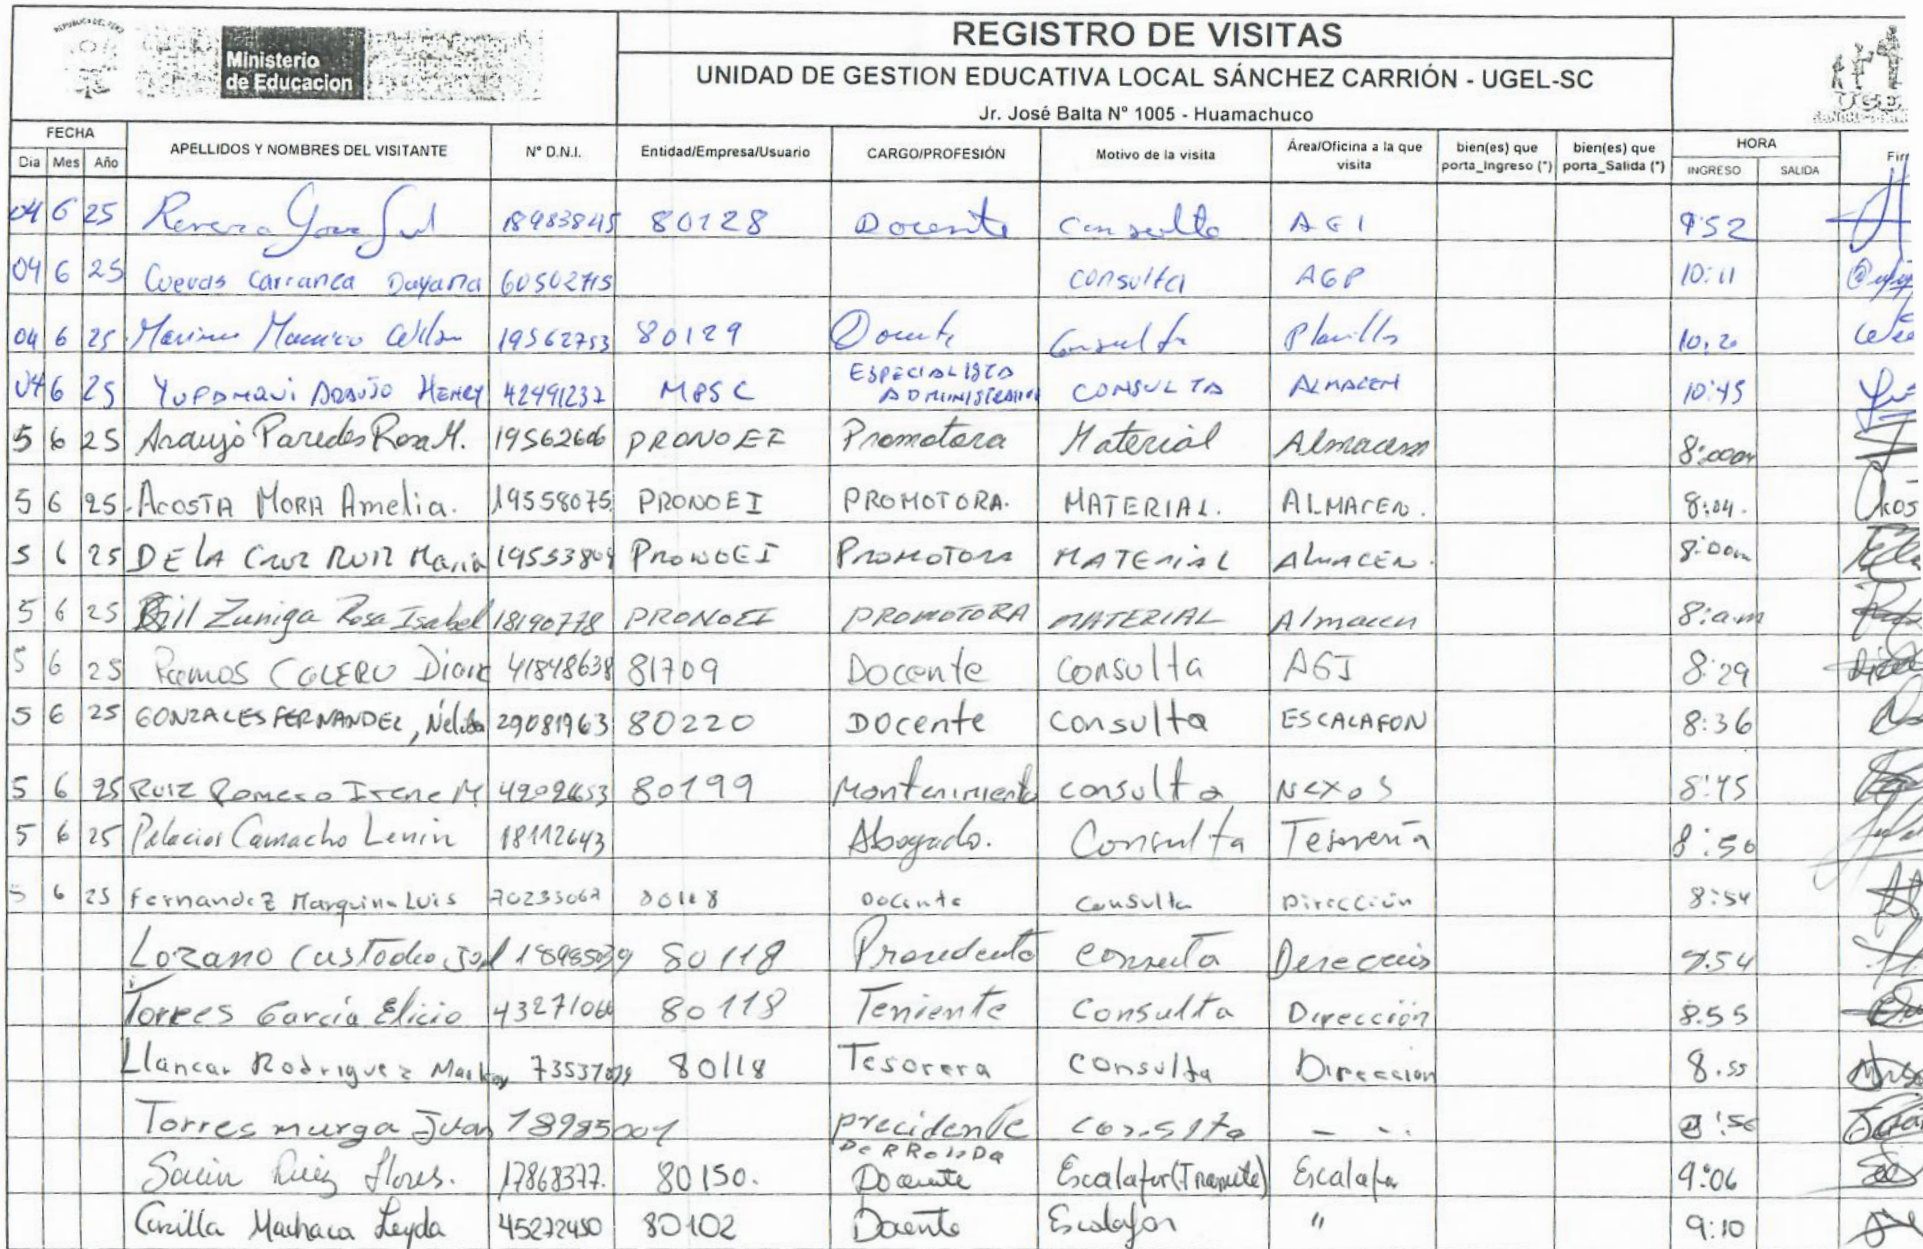 REPUBLICA DEL PERU
Ministerio
de Educacion
REGISTRO DE VISITAS
UNIDAD DE GESTION EDUCATIVA LOCAL SÁNCHEZ CARRIÓN - UGEL-SC
Jr. José Balta N° 1005 - Huamachuco
FECHA APELLIDOS Y NOMBRES DEL VISITANTE N° D.N.I. Entidad/Empresa/Usuario CARGO/PROFESIÓN Motivo de la visita Área/Oficina a la que visita bien(es) que porta_Ingreso (*) bien(es) que porta_Salida (*) HORA
Dia Mes Año INGRESO SALIDA
04 6 25 80128 Docente Consulta AGI 9:52
04 6 25 Cuevas Carranca Dayana 60502715 consulta AGP 10:11
04 6 25 19562753 80129 Docente Consulta Planilla 10:20
04 6 25 YUPANQUI ARAUJO HENRY 42491237 MPSC ESPECIALISTA ADMINISTRATIVO CONSULTA ALMACEN 10:45
5 6 25 Araujo Paredes Rosa M. 19562606 PRONOEI Promotora Material Almacem 8:00am
5 6 25 ACOSTA MORA Amelia. 19558075 PRONOEI PROMOTORA. MATERIAL. ALMACEN. 8:04.
5 6 25 DE LA CRUZ RUIZ Maria 19553804 PRONOEI PROMOTORA MATERIAL ALMACEN. 8:00am
5 6 25 Zuniga Rosa Isabel 18190778 PRONOEI PROMOTORA MATERIAL Almacen 8:am
5 6 25 Ramos 41848638 81709 Docente Consulta AGI 8:29
5 6 25 GONZALES FERNANDEZ, Nelida 29081963 80220 Docente consulta ESCALAFON 8:36
5 6 25 RUIZ Romero Irene M 80199 Mantenimiento consulta Nexos 8:45
5 6 25 Palacios Camacho Lenin 18112643 Abogado. Consulta Tesoreria 8:50
5 6 25 Fernandez Marquina Luis 80118 Docente consulta Dirección 8:54
Lozano Custodio 80118 8.54
Torres García Elicio 80118 Teniente Consulta Dirección 8.55
Llancar Rodriguez 80118 Tesorera Consulta Direccion 8.55
Torres murga Juan 18985001 precidente DE RRONDA - -
Ruiz Flores. 17868377. 80150. Docente Escalafon (Tramite) Escalafon 9:06
Machaca Leyda 45272450 80102 Docente Escalafon " 9:10